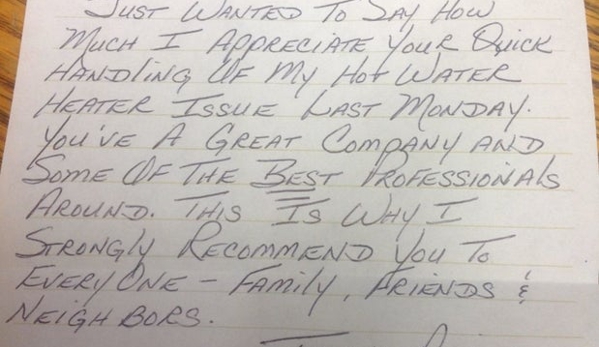 Just Wanted To Say How
Much I Appreciate Your Quick
Handling Of My Hot Water
Heater Issue Last Monday.
You've A Great Company And
Some Of The Best Professionals
Around. This Is Why I
Strongly Recommend You To
Everyone - Family, Friends &
Neighbors.